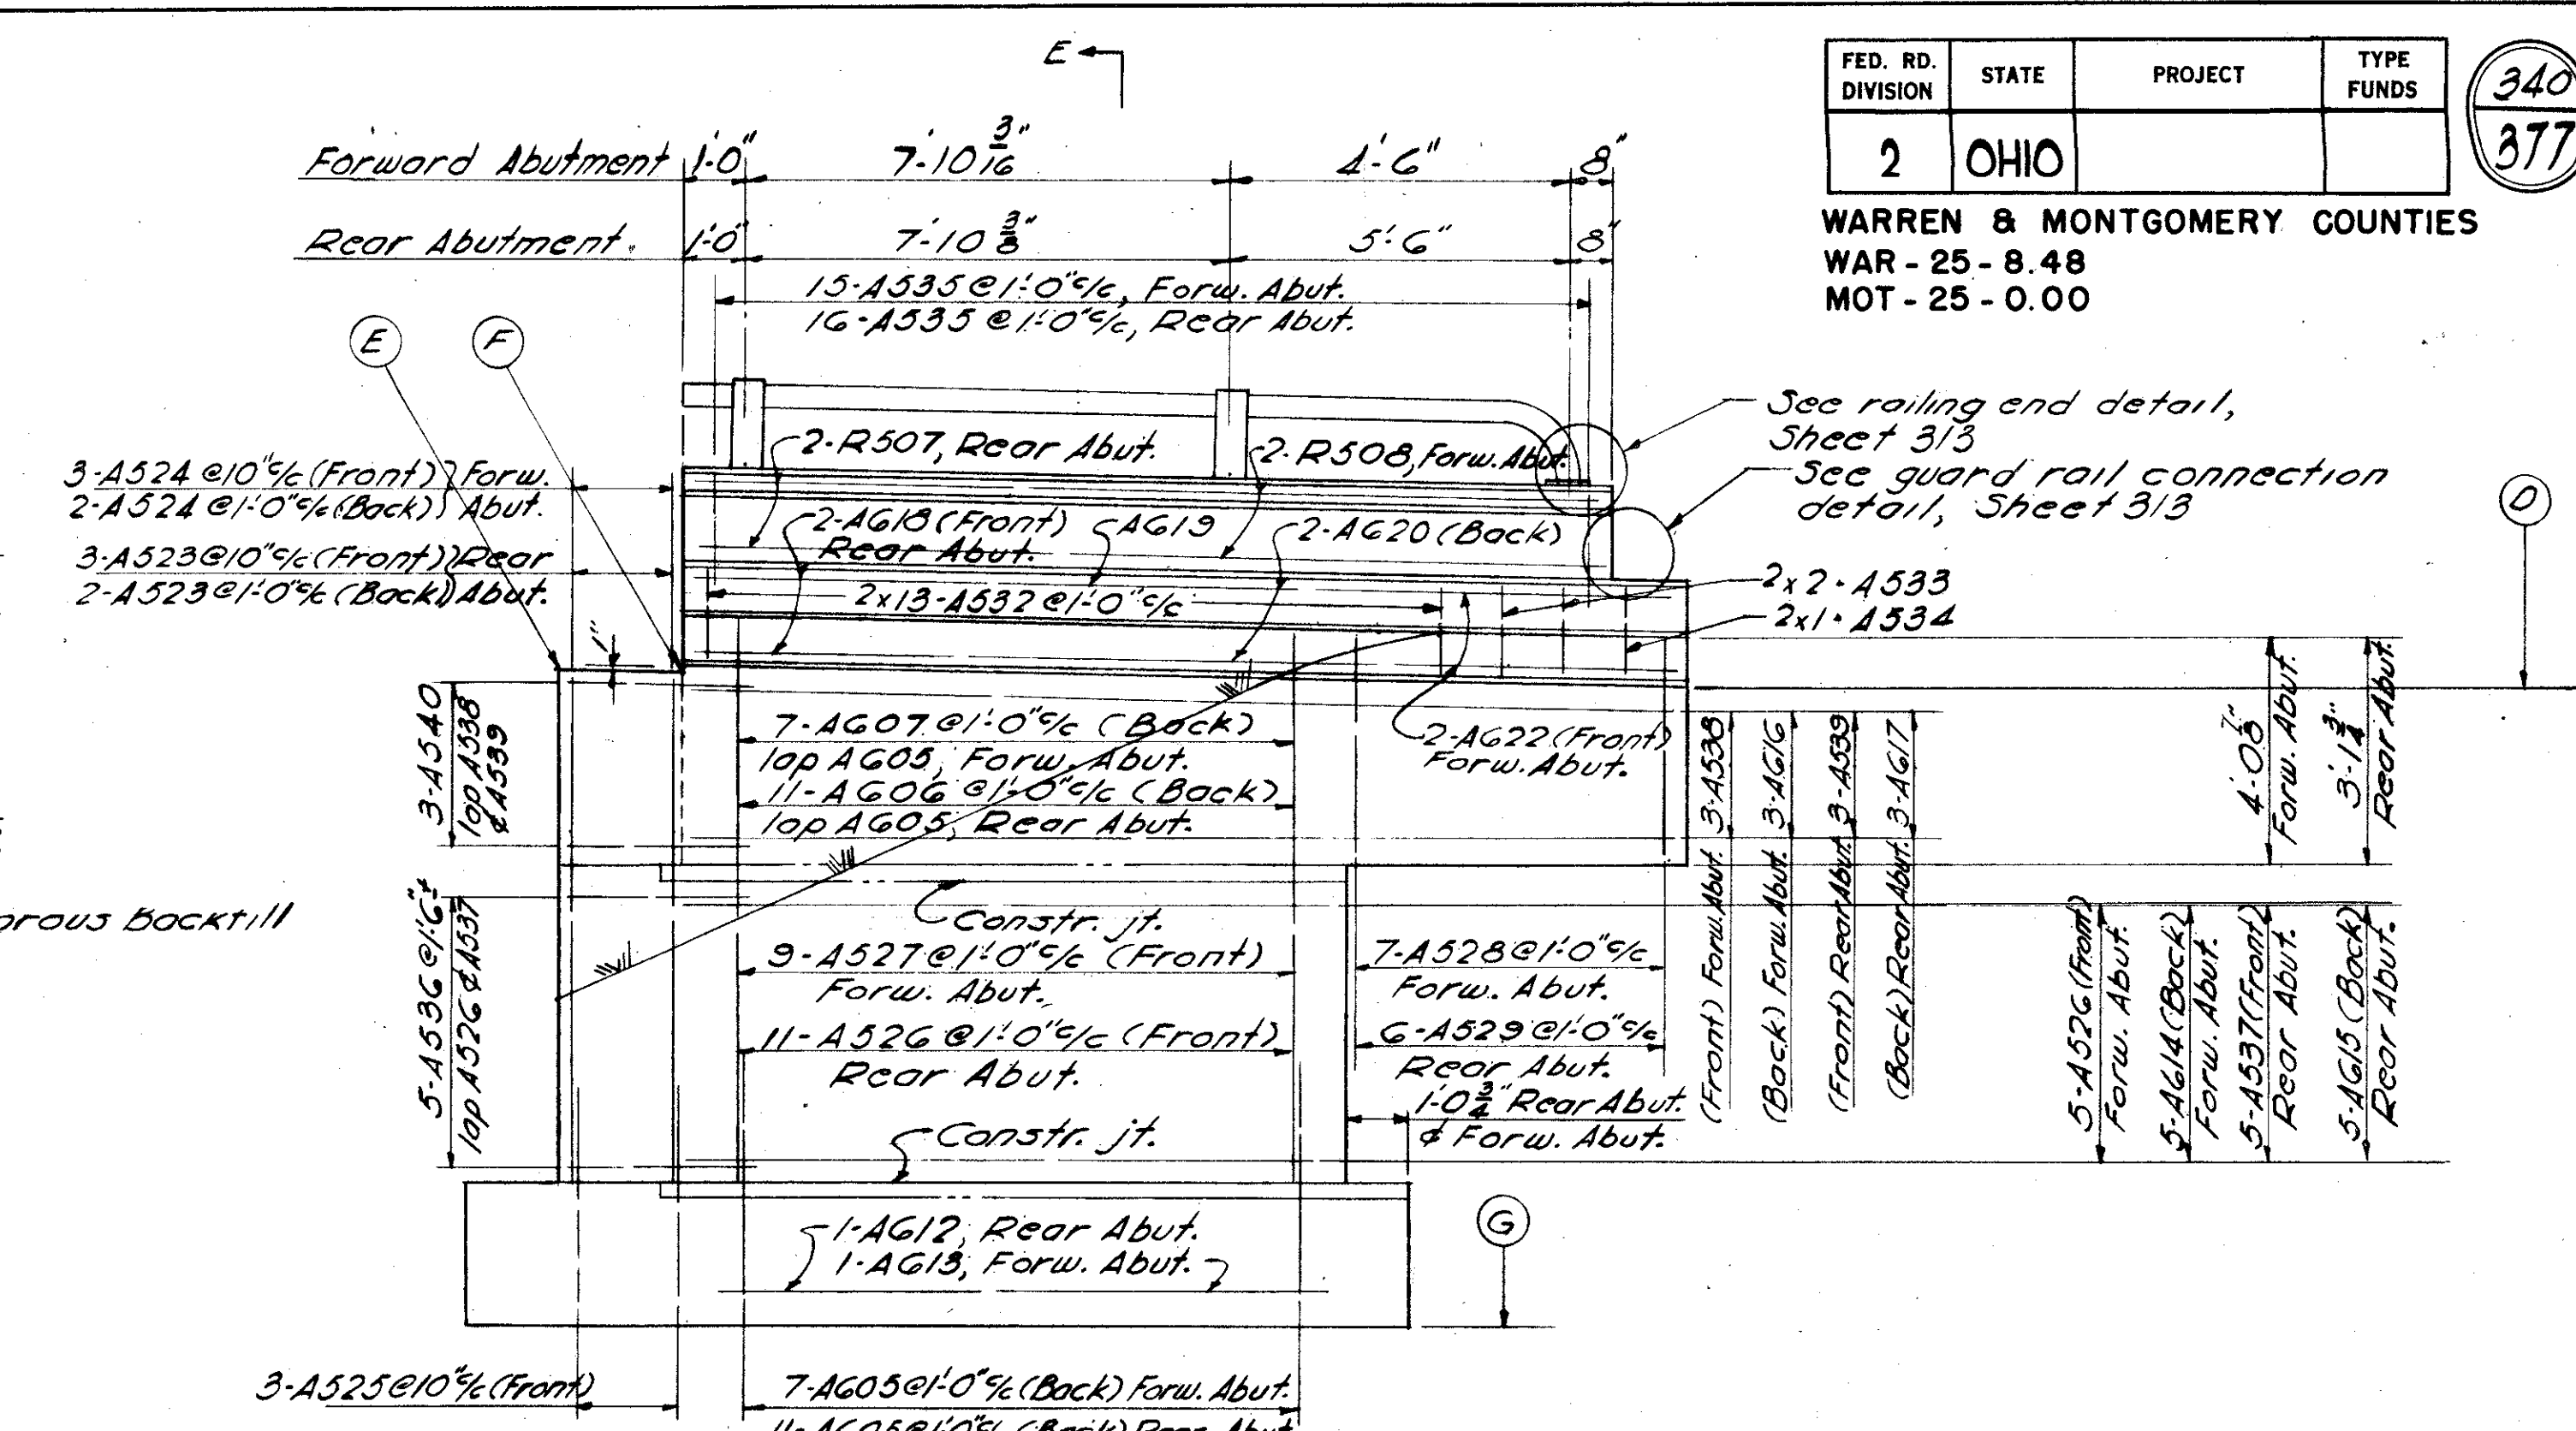 E
FED. RD. DIVISION
STATE
PROJECT
TYPE FUNDS
2
OHIO
340
377
WARREN & MONTGOMERY COUNTIES
WAR - 25 - 8.48
MOT - 25 - 0.00
Forward Abutment 1'-0" 7'-10 3/16" 4'-6" 8"
Rear Abutment 1'-0" 7'-10 3/8" 5'-6" 8"
15-A535 @ 1'-0" c/c, Forw. Abut.
16-A535 @ 1'-0" c/c, Rear Abut.
E
F
See railing end detail,
Sheet 313
See guard rail connection
detail, Sheet 313
D
2-R507, Rear Abut.
2-R508, Forw. Abut.
3-A524 @ 10" c/c (Front) } Forw.
2-A524 @ 1'-0" c/c (Back) } Abut.
3-A523 @ 10" c/c (Front) } Rear
2-A523 @ 1'-0" c/c (Back) } Abut.
2-A618 (Front)
Rear Abut.
A619
2-A620 (Back)
2x13-A532 @ 1'-0" c/c
2x2-A533
2x1-A534
1"
3-A540
lap A538
& A539
7-A607 @ 1'-0" c/c (Back)
lap A605, Forw. Abut.
11-A606 @ 1'-0" c/c (Back)
lap A605, Rear Abut.
2-A622 (Front)
Forw. Abut.
(Front) Forw. Abut. 3-A538
(Back) Forw. Abut. 3-A616
(Front) Rear Abut. 3-A539
(Back) Rear Abut. 3-A617
4'-0 7/8"
Forw. Abut.
3'-1 3/4"
Rear Abut.
orous Backfill
Constr. jt.
5-A536 @ 1'-6" ±
lap A526 & A537
9-A527 @ 1'-0" c/c (Front)
Forw. Abut.
11-A526 @ 1'-0" c/c (Front)
Rear Abut.
7-A528 @ 1'-0" c/c
Forw. Abut.
6-A529 @ 1'-0" c/c
Rear Abut.
1'-0 3/4" Rear Abut.
& Forw. Abut.
5-A526 (Front)
Forw. Abut.
5-A614 (Back)
Forw. Abut.
5-A537 (Front)
Rear Abut.
5-A615 (Back)
Rear Abut.
Constr. jt.
1-A612, Rear Abut.
1-A613, Forw. Abut.
G
3-A525 @ 10" c/c (Front)
7-A605 @ 1'-0" c/c (Back) Forw. Abut.
11-A605 @ 1'-0" c/c (Back) Rear Abut.